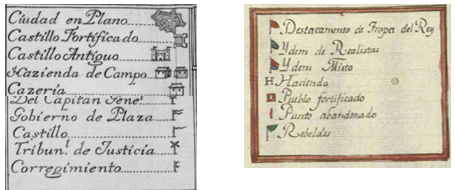 Ciudad en Plano
Castillo Fortificado
Castillo Antiguo
Hazienda de Campo
Cazeria
Del Capitan Gene.l
Gobierno de Plaza
Castillo
Tribun.l de Justicia
Corregimiento
Destacamento de Tropa del Rey
Ydem de Realistas
Ydem Misto
H Hacienda
Pueblo fortificado
Punto abandonado
Rebeldes